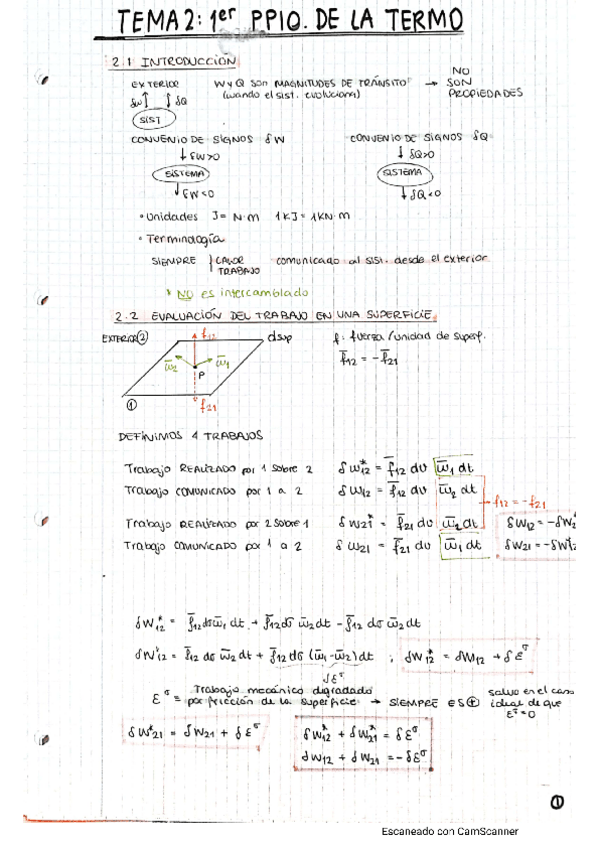 TEMA 2: 1er PPIO. DE LA TERMO
2.1 INTRODUCCIÓN
EXTERIOR
δW δQ
SIST
W y Q SON MAGNITUDES DE TRÁNSITO → NO SON PROPIEDADES
(cuando el sist. evoluciona)
CONVENIO DE SIGNOS δW
CONVENIO DE SIGNOS δQ
↓ δW>0
↓ δQ>0
SISTEMA
SISTEMA
↓ δW<0
↓ δQ<0
• Unidades J = N·m 1 KJ = 1KN·m
• Terminología
SIEMPRE { CALOR TRABAJO comunicado al SIST. desde el exterior
* NO es intercambiado
2.2 EVALUACIÓN DEL TRABAJO EN UNA SUPERFICIE
EXTERIOR ② f12 dsup
w̄2 w̄1
P
① f21
f: fuerza/unidad de superf.
f̄12 = -f̄21
DEFINIMOS 4 TRABAJOS
Trabajo REALIZADO por 1 sobre 2 δW*12 = f̄12 dσ w̄1 dt
Trabajo COMUNICADO por 1 a 2 δW12 = f̄12 dσ w̄2 dt
f12 = -f21
Trabajo REALIZADO por 2 sobre 1 δW21* = f̄21 dσ w̄2 dt
Trabajo COMUNICADO por 1 a 2 δW21 = f̄21 dσ w̄1 dt
δW12 = -δW2
δW21 = -δW*12
δW*12 = f̄12 dσ w̄1 dt + f̄12 dσ w̄2 dt - f̄12 dσ w̄2 dt
δW*12 = f̄12 dσ w̄2 dt + f̄12 dσ (w̄1-w̄2) dt ; δW*12 = δW12 + δƐσ
δƐσ
Ɛσ = Trabajo mecánico degradado por fricción de la superficie → SIEMPRE ES ⊕ salvo en el caso ideal de que Ɛσ=0
δW*21 = δW21 + δƐσ
δW*12 + δW*21 = δƐσ
δW12 + δW21 = -δƐσ
①
Escaneado con CamScanner